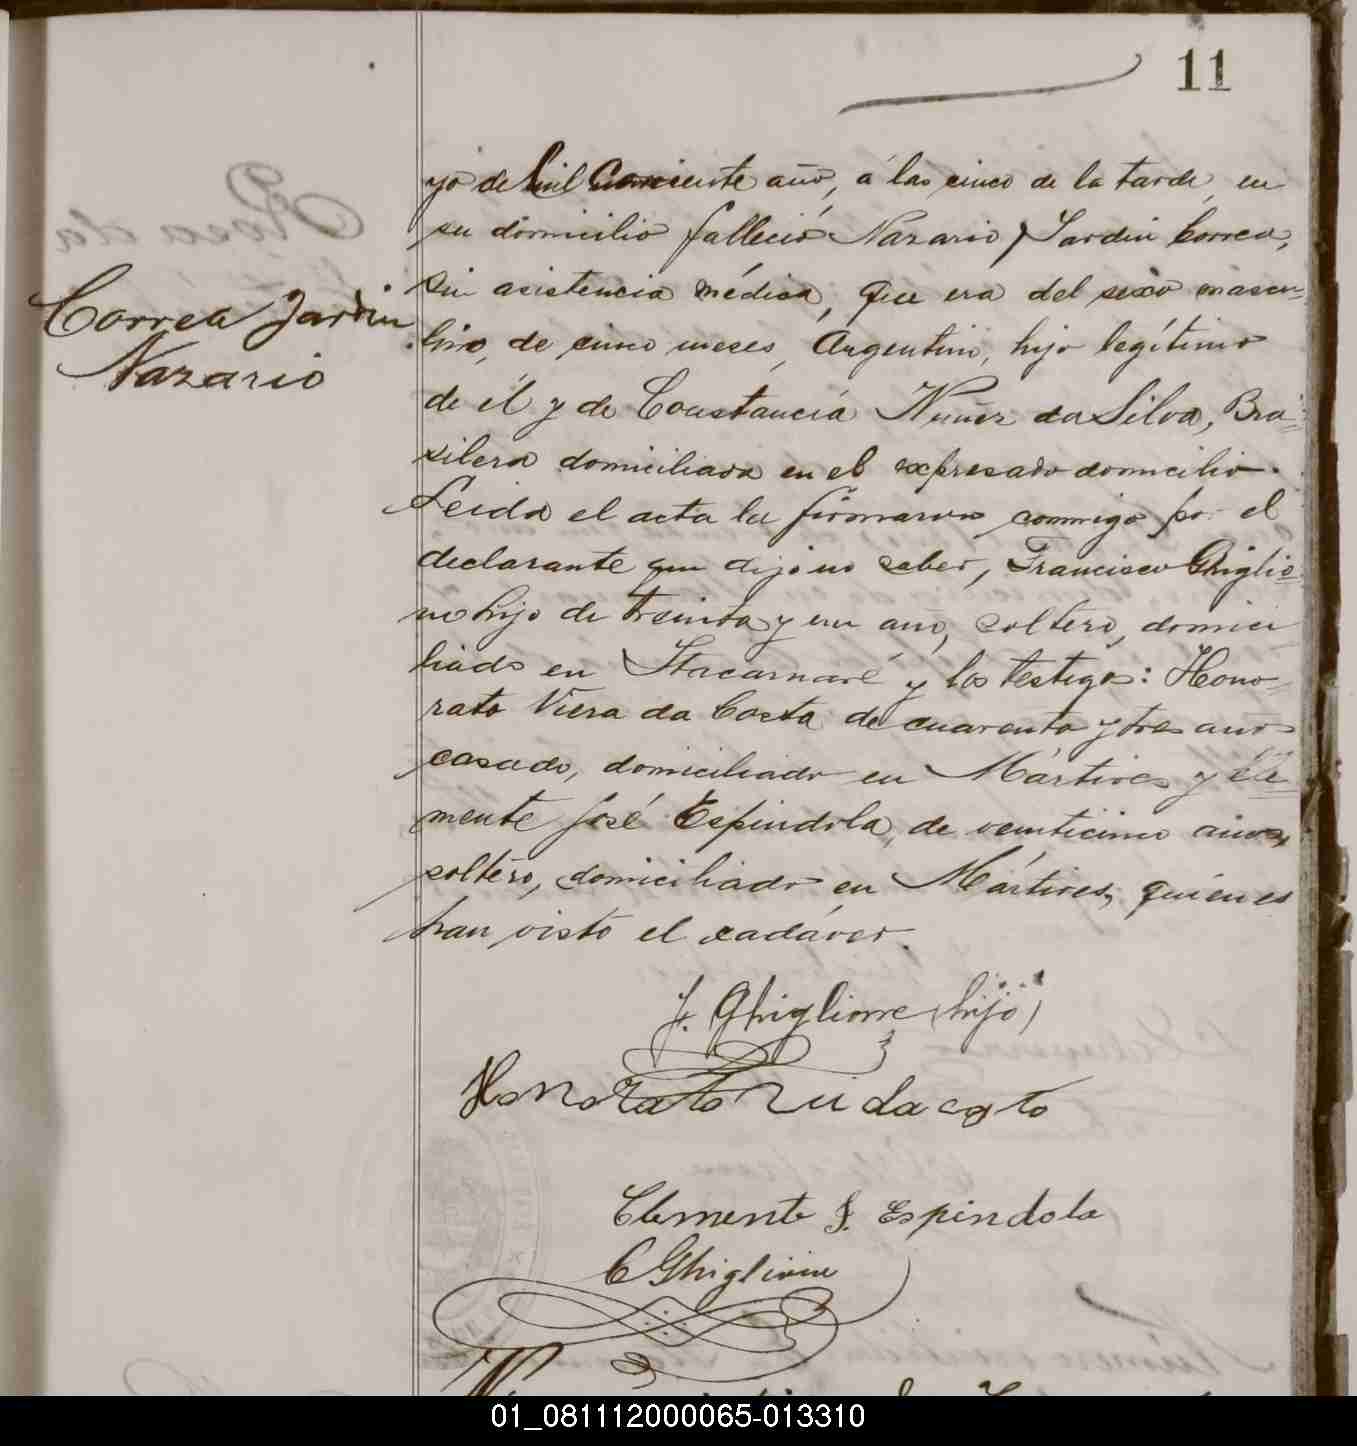 11
yo del corriente año, á las cinco de la tarde, en
su domicilio falleció Nazario Jardin Correa,
sin asistencia médica, que era del sexo mascu-
Correa Jardin
lino, de cinco meses, Argentino, hijo legítimo
Nazario
de él y de Constancia Nuñez da Silva, Bra-
silera domiciliada en el expresado domicilio.
Leida el acta la firmaron conmigo por el
declarante que dijo no saber, Francisco Ghiglio-
ne hijo de treinta y un año, soltero, domici
liado en Itacaruaré y los testigos: Hono-
rato Viera da Costa de cuarenta y tres años
casado, domiciliado en Mártires y Cle
mente José Espindola, de veinticinco años,
soltero, domiciliado en Mártires, quienes
han visto el cadáver.
F. Ghiglione (hijo)
Honorato da costo
Clemente J. Espindola
C Ghiglione
01_081112000065-013310